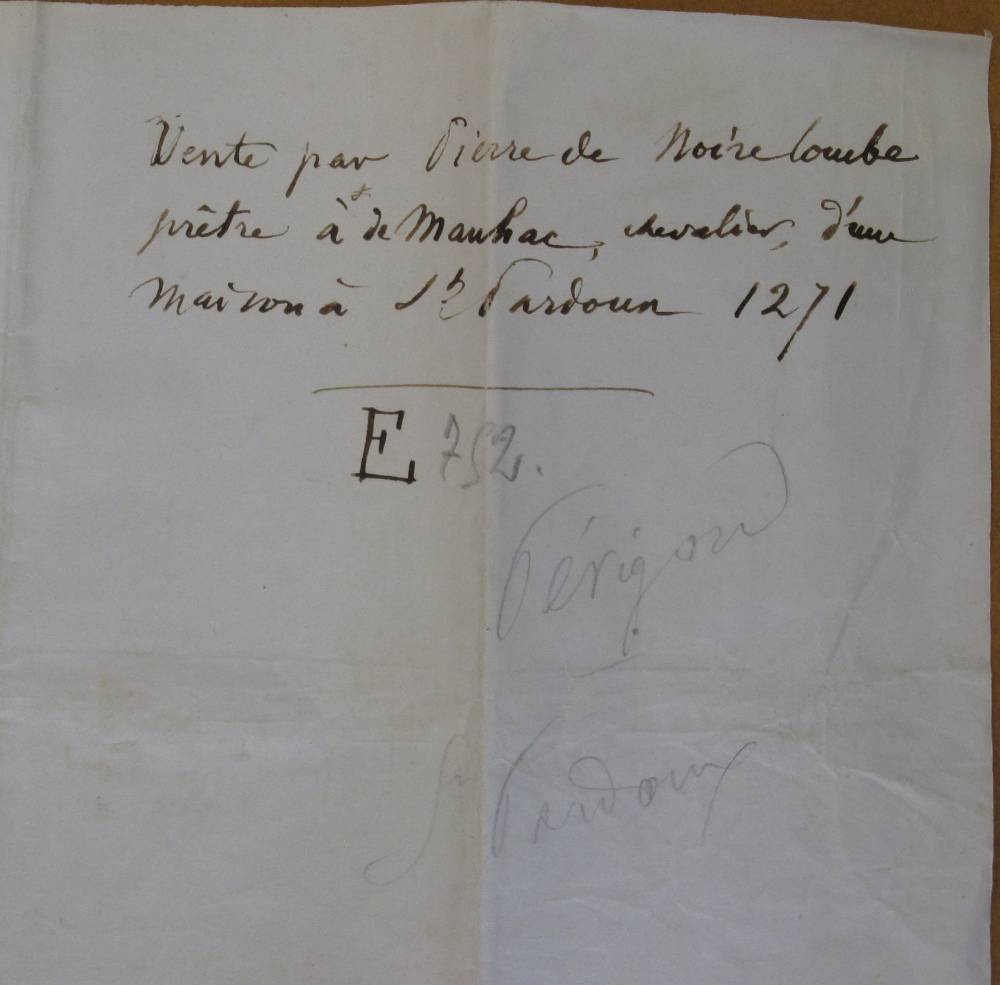 Vente par Pierre de Noirelombe
prêtre à de Maulhac, chevalier, d'une
maison à St Pardoux 1271
E 752.
Périgord
St Pardoux